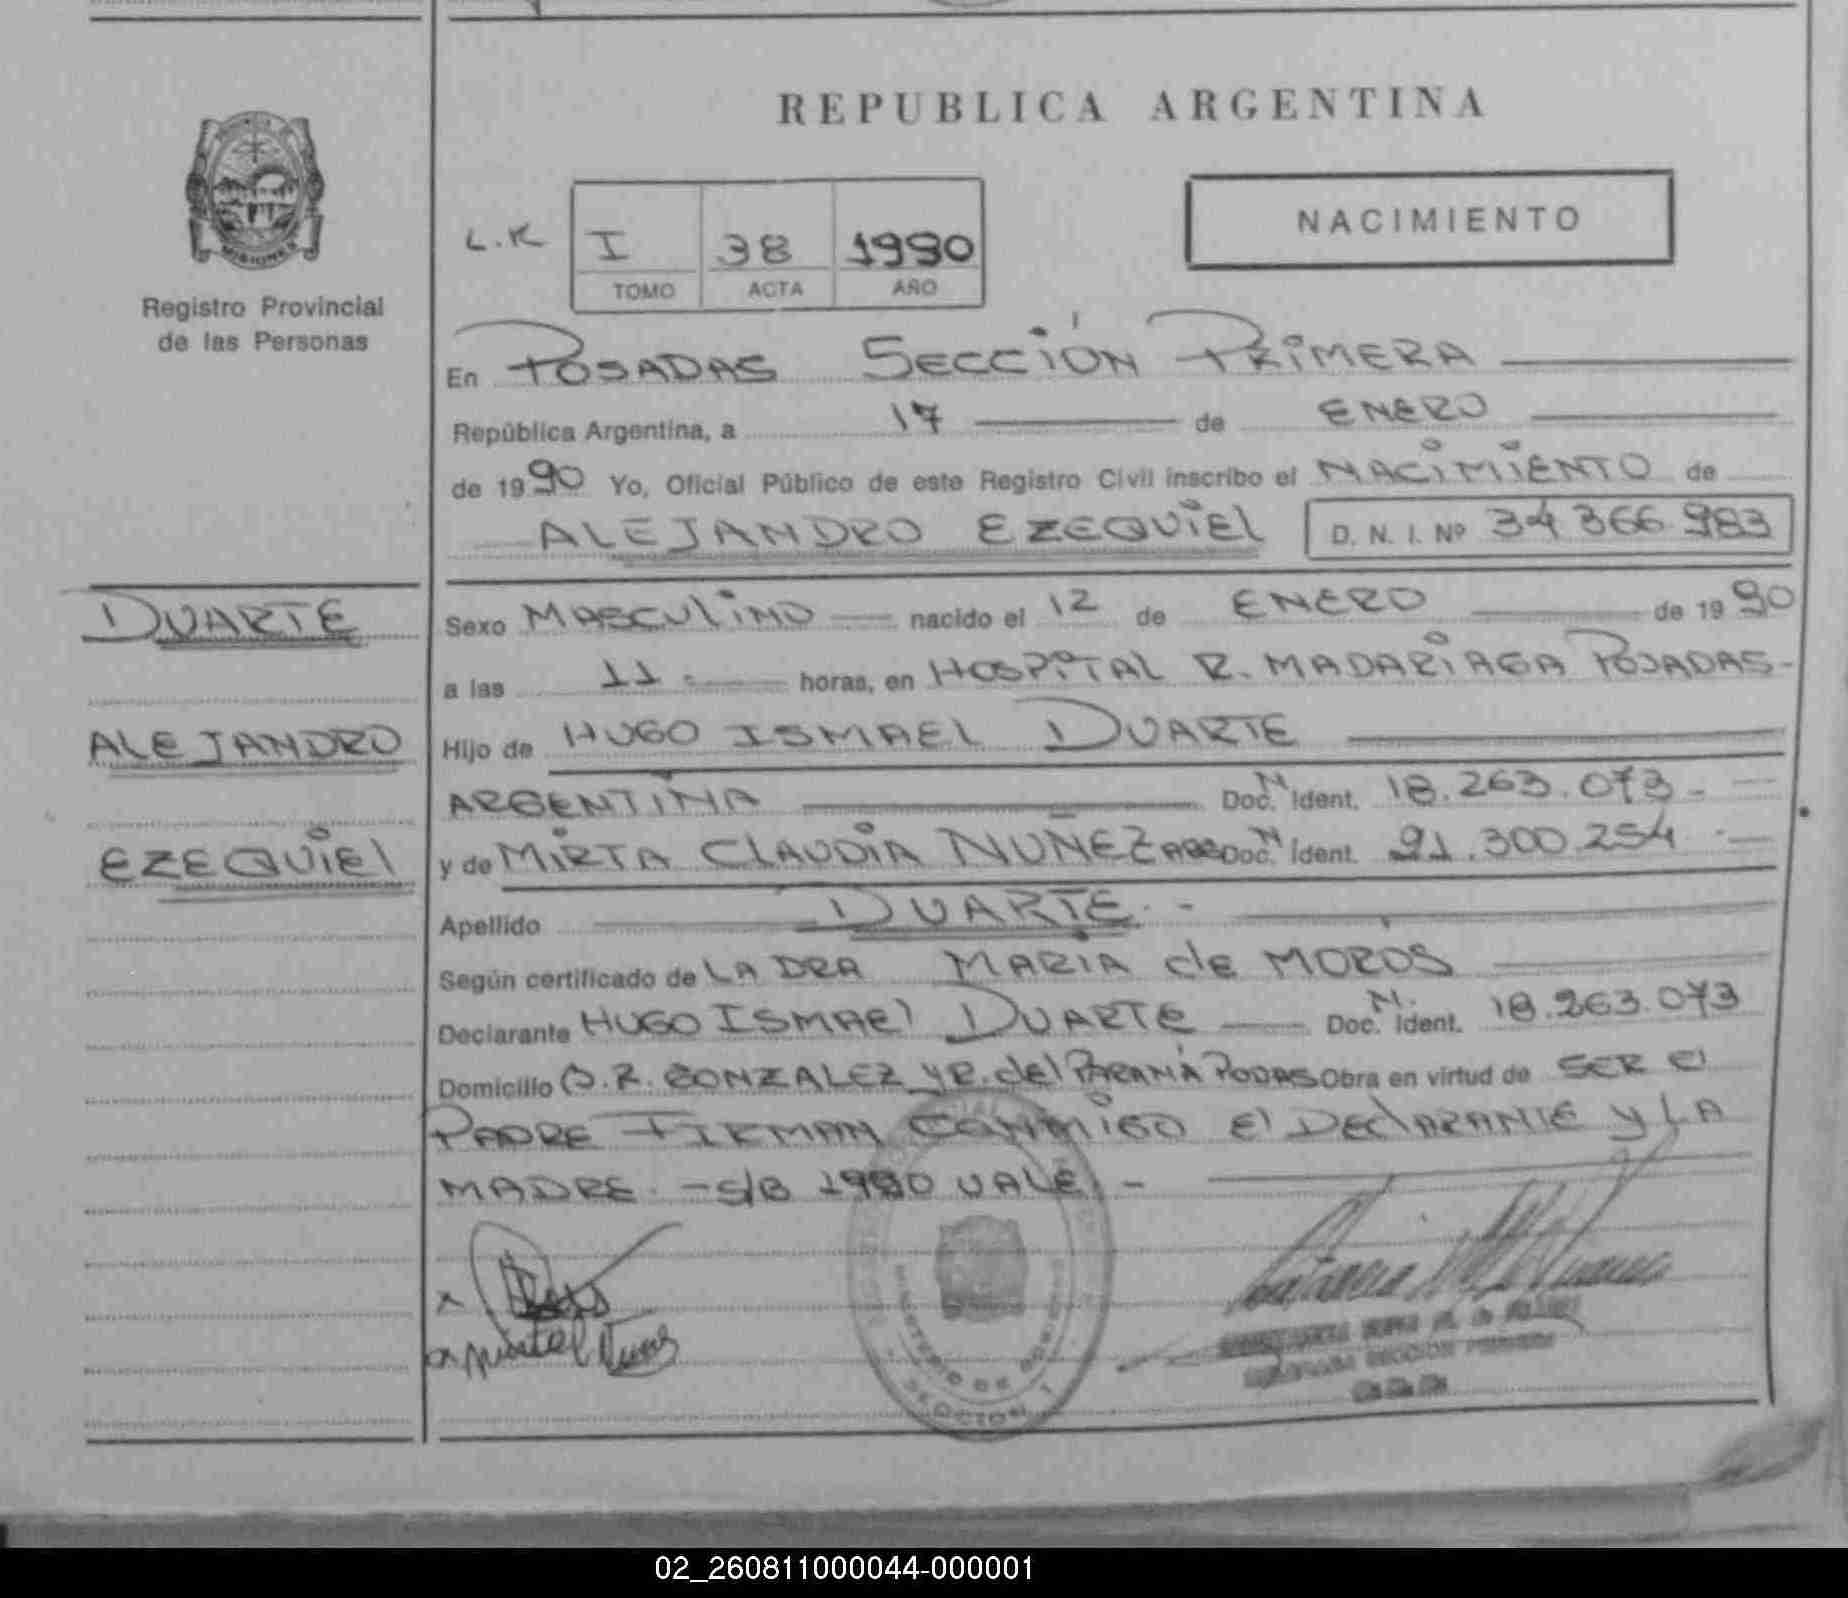 REPUBLICA ARGENTINA
MISIONES
Registro Provincial
de las Personas
L.R
I 38 1990
TOMO ACTA AÑO
NACIMIENTO
En POSADAS SECCIÓN PRIMERA
República Argentina, a 17 de ENERO
de 1990 Yo, Oficial Público de este Registro Civil inscribo el NACIMIENTO de
ALEJANDRO EZEQUIEL D. N. I. Nº 34 366 983
DUARTE
ALEJANDRO
EZEQUIEL
Sexo MASCULINO nacido el 12 de ENERO de 1990
a las 11 - horas, en HOSPITAL R. MADARIAGA POSADAS-
Hijo de HUGO ISMAEL DUARTE
ARGENTINA Doc. N Ident. 18.263.073-
y de MIRTA CLAUDIA NUÑEZ Doc. N Ident. 91.300.254
Apellido DUARTE.-
Según certificado de LA DRA MARIA de MOROS
Declarante HUGO ISMAEL DUARTE Doc. N. Ident. 18.263.073
Domicilio GONZALEZ y R. del PARANÁ Obra en virtud de SER El
PADRE FIRMAN CONMIGO El DEClARANTE y LA
MADRE. - S/B 1990 VALE -
x
MINISTERIO DE GOBIERNO
SECCION 1
02_260811000044-000001